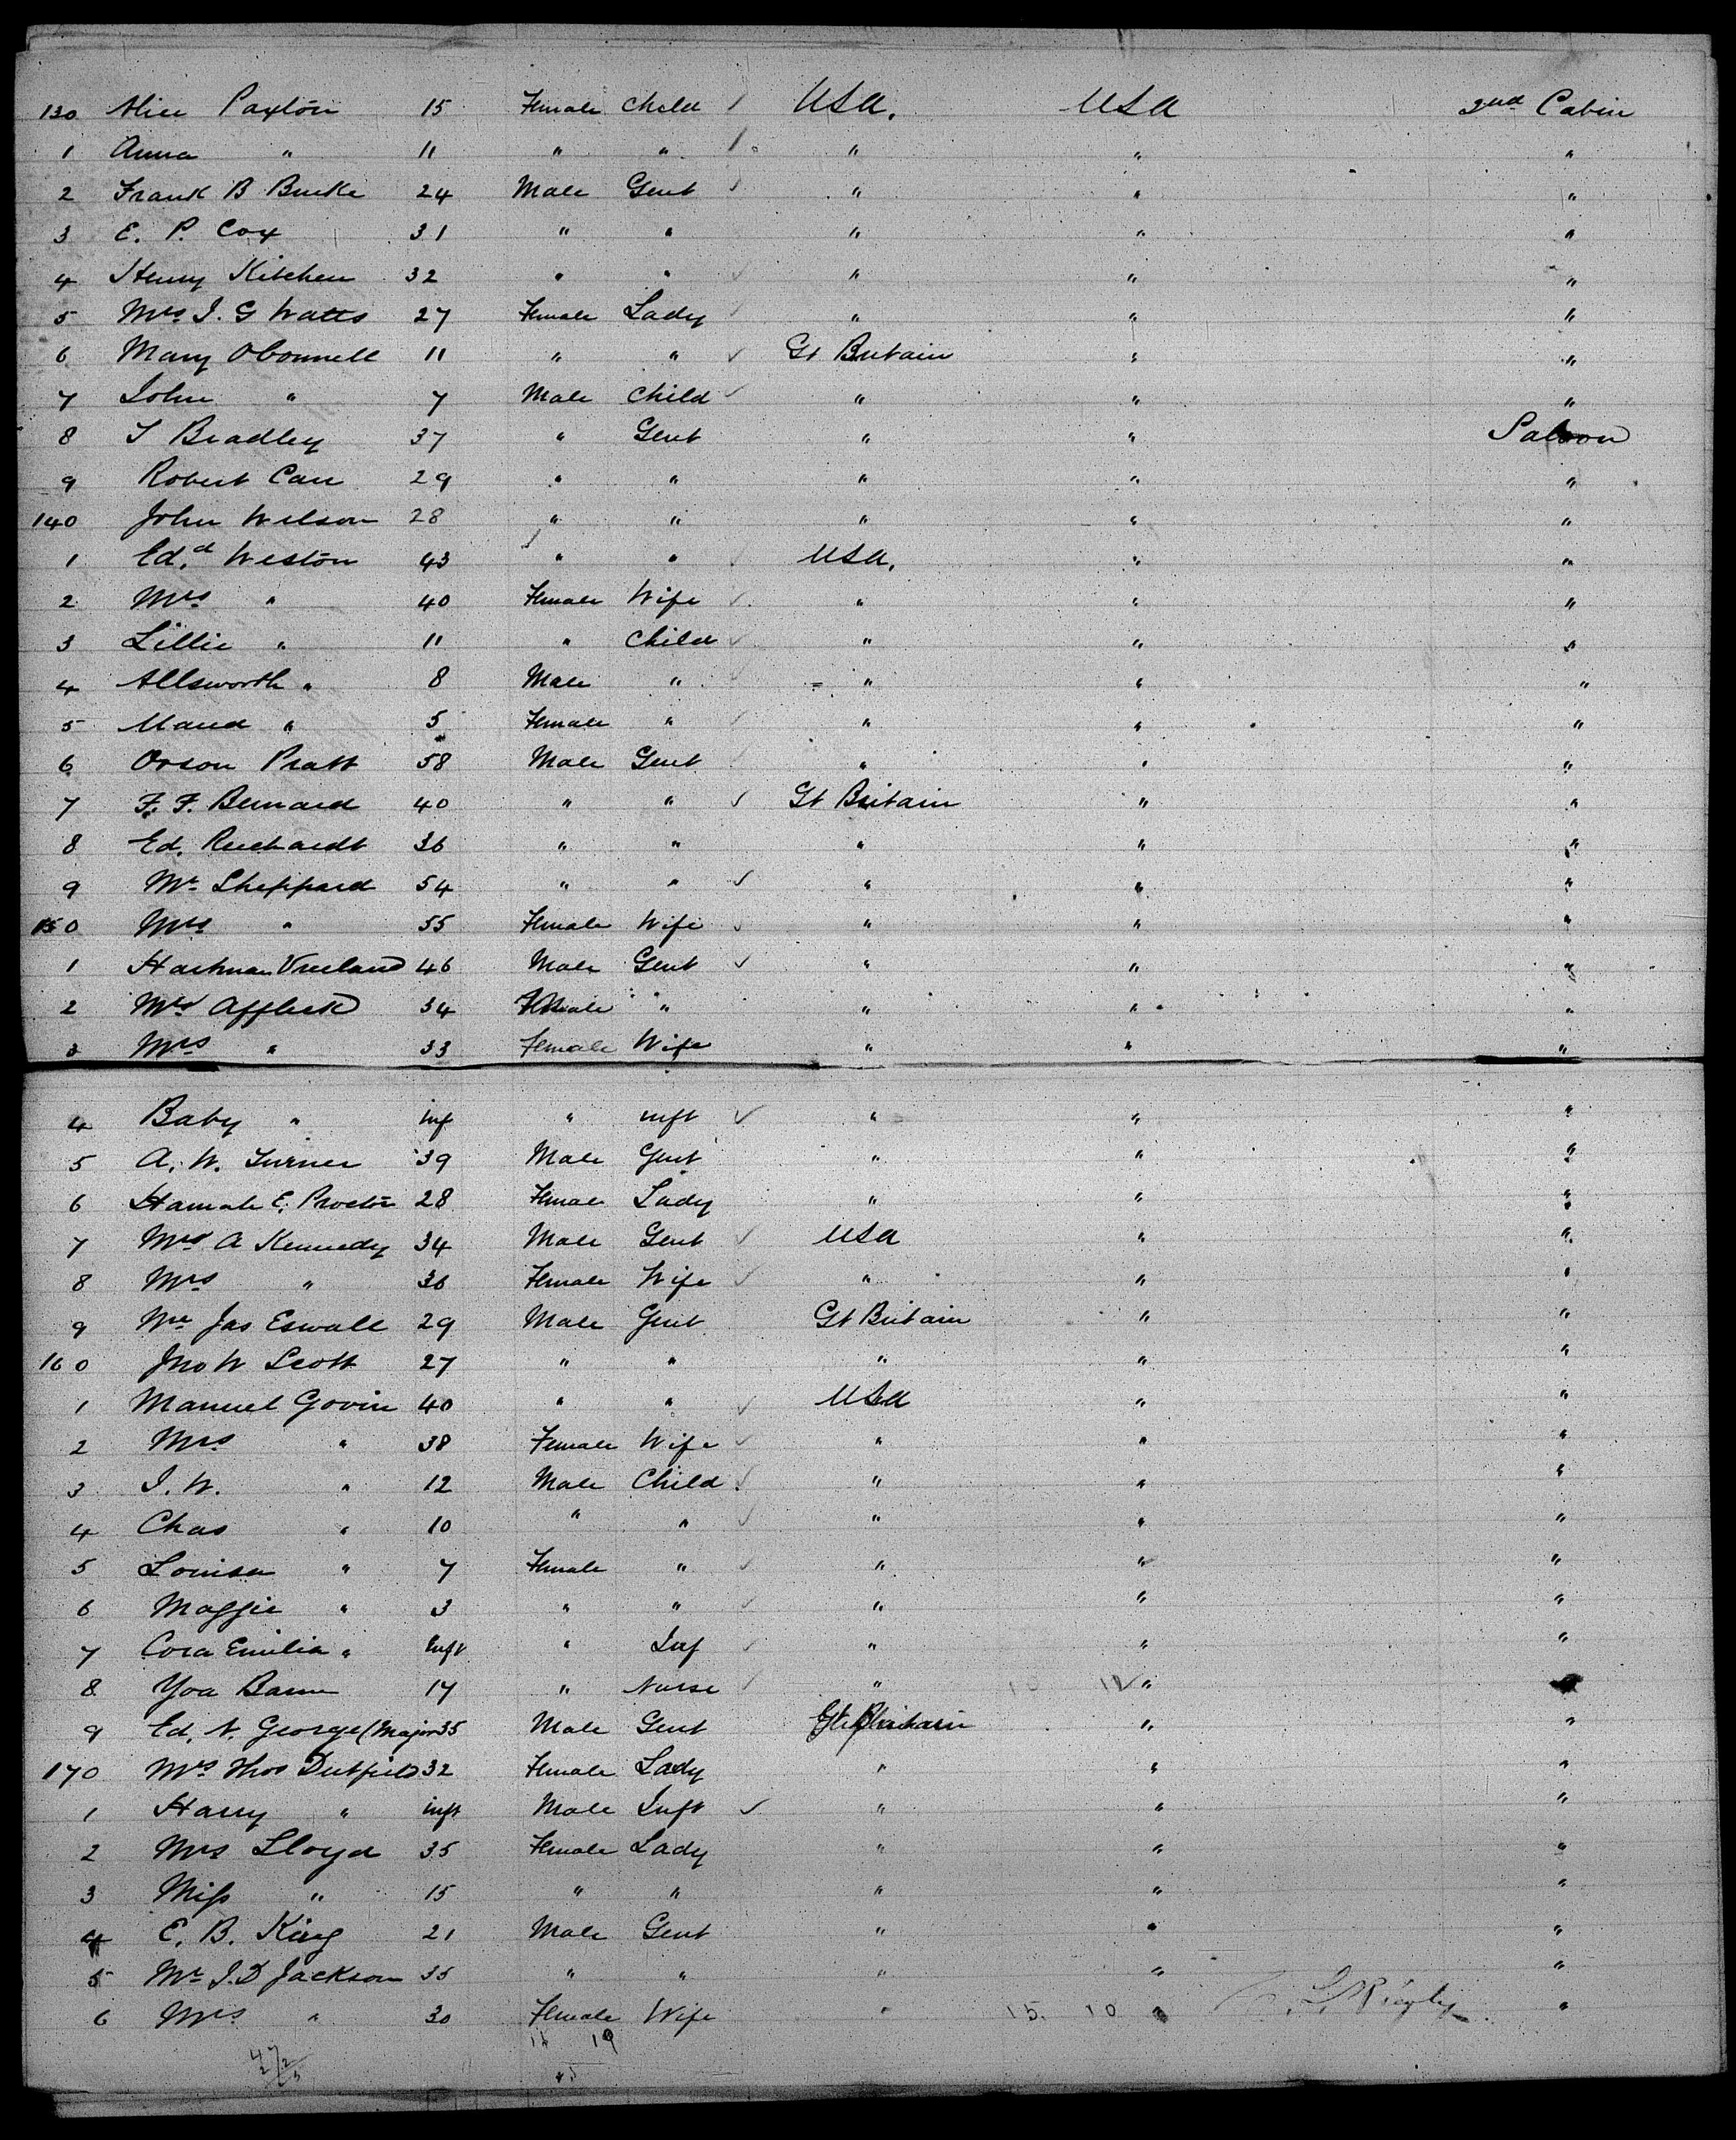 130 Alice Paxton 15 Female Child USA. USA 2nd Cabin
1 Anna " 11 " " " " "
2 Frank B Burke 24 Male Gent " " "
3 E. P. Cox 31 " " " " "
4 Henry Kitchen 32 " " " " "
5 Mrs I. G Watts 27 Female Lady " " "
6 Mary OConnell 11 " " Gt Britain " "
7 John " 7 Male Child " " "
8 T Bradley 37 " Gent " " Saloon
9 Robert Carr 29 " " " " "
140 John Wilson 28 " " " " "
1 Ed.d Weston 43 " " USA. " "
2 Mrs " 40 Female Wife " " "
3 Lillie " 11 " Child " " "
4 Allsworth " 8 Male " " " "
5 Maud " 5 Female " " " "
6 Orson Pratt 58 Male Gent " " "
7 F. F. Bernard 40 " " Gt Britain " "
8 Ed. Ruchardt 36 " " " " "
9 Mr Sheppard 54 " " " " "
150 Mrs " 55 Female Wife " " "
1 Hartman Vreeland 46 Male Gent " " "
2 Mr Affleck 34 Male " " " "
3 Mrs " 33 Female Wife " " "
4 Baby " inf " inft " " "
5 A. W. Turner 39 Male Gent " " "
6 Hannah E. Proctor 28 Female Lady " " "
7 Mr A Kennedy 34 Male Gent USA " "
8 Mrs " 36 Female Wife " " "
9 Mr Jas Eswall 29 Male Gent Gt Britain " "
160 Jno W Scott 27 " " " " "
1 Manuel Govin 40 " " USA " "
2 Mrs " 38 Female Wife " " "
3 I. W. " 12 Male Child " " "
4 Chas " 10 " " " " "
5 Louisa " 7 Female " " " "
6 Maggie " 3 " " " " "
7 Cora Emilia " Inft " Inf " " "
8 Yoa Barn 17 " Nurse " "
9 Ed. N. George (Major 35 Male Gent Gt Britain " "
170 Mrs Thos Dutfield 32 Female Lady " " "
1 Harry " inft Male Inft " " "
2 Mrs Lloyd 35 Female Lady " " "
3 Miss " 15 " " " " "
4 E. B. King 21 Male Gent " " "
5 Mr J. D Jackson 35 " " " " "
6 Mrs " 30 Female Wife " 15. 10 " "
19